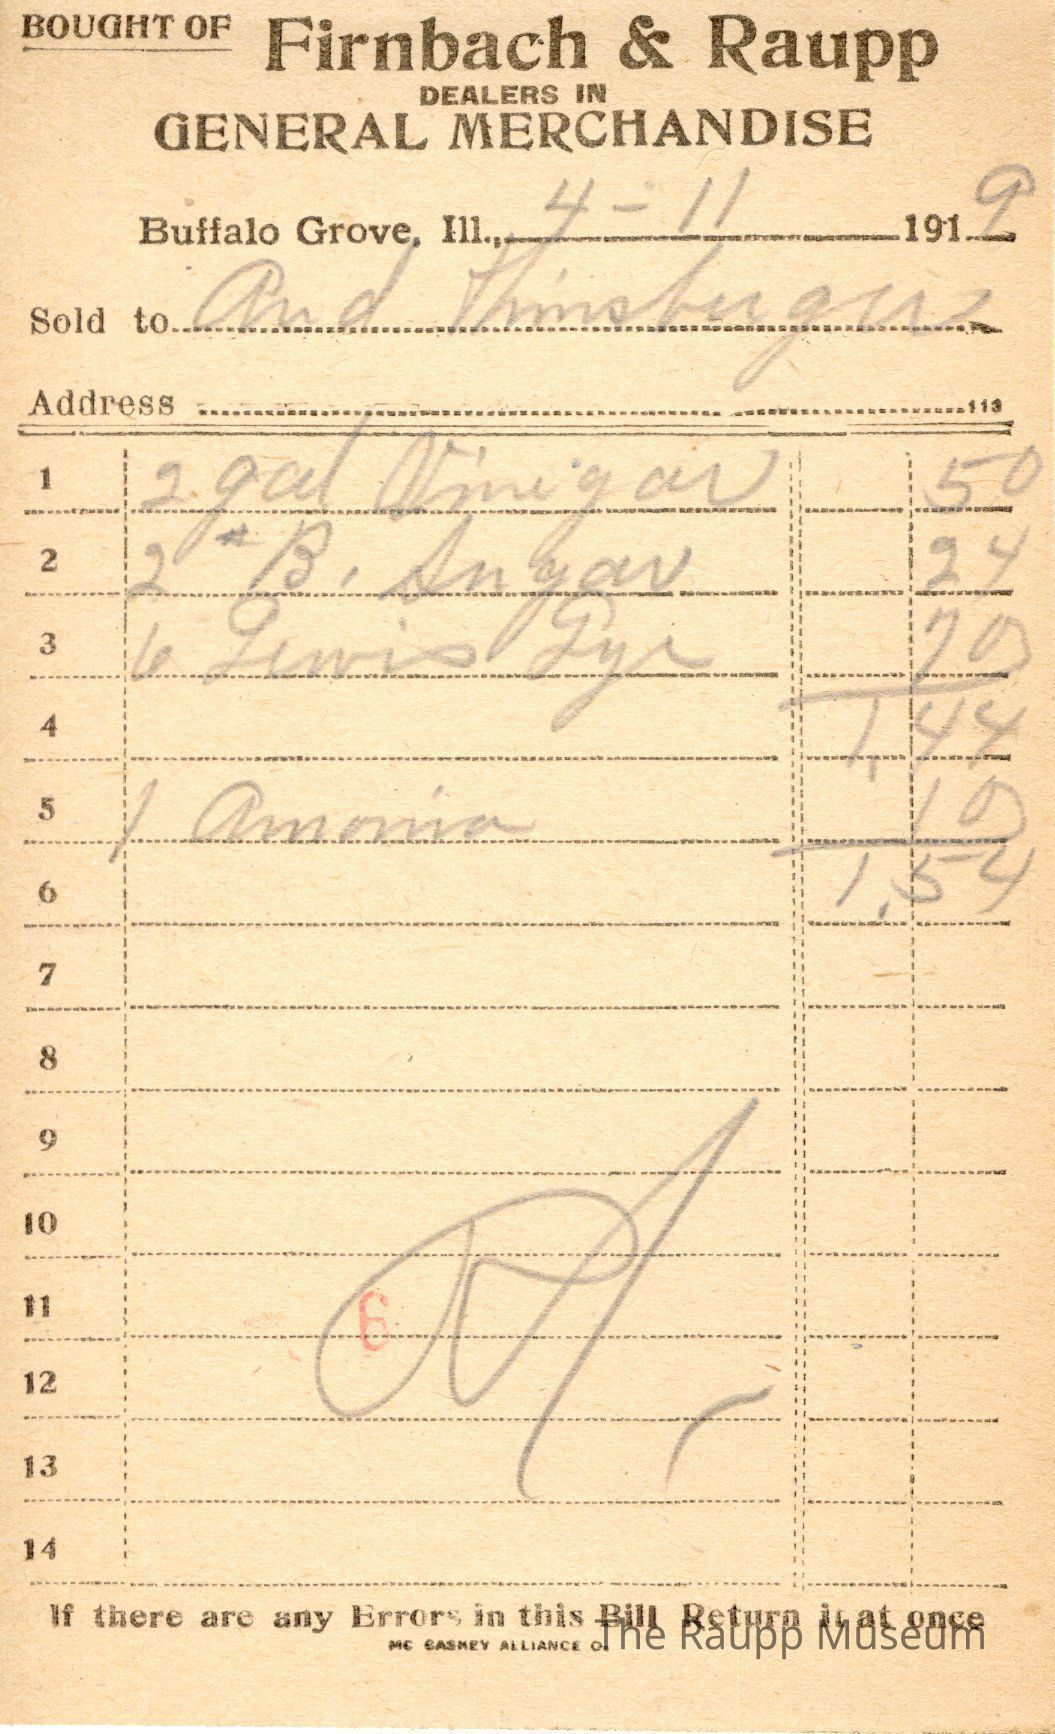 BOUGHT OF Firnbach & Raupp
DEALERS IN
GENERAL MERCHANDISE
Buffalo Grove, Ill., 4-11 1919
Sold to And
Address 113
1 2 gal Vinigar 50
2 2# B. Sugar 24
3 6 Lewis Lye 70
4 1,44
5 1 Amonia 10
6 1,54
7
8
9
10
11 6
12
13
14
If there are any Errors in this Bill Return it at once
MC CASKEY ALLIANCE O.
The Raupp Museum